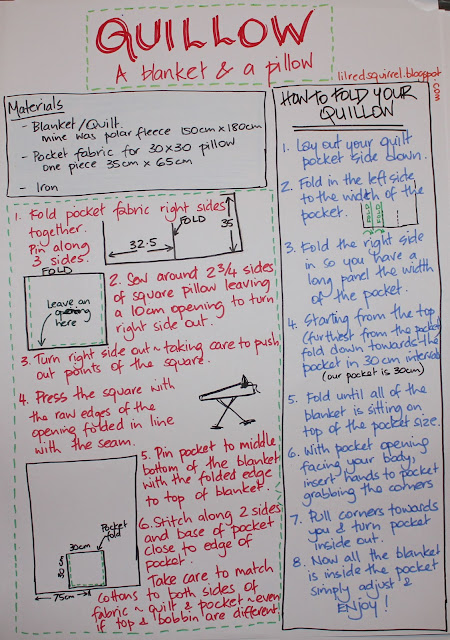 QUILLOW
A blanket & a pillow
lilredsquirrel.blogspot
.com
Materials
- Blanket/Quilt.
mine was polar fleece 150cm x 180cm
- Pocket fabric for 30x30 pillow
one piece 35cm x 65cm
- Iron
1. Fold pocket fabric right sides
together.
Pin along
3 sides.
FOLD
32.5
35
FOLD
Leave an
opening
here
2. Sew around 2 3/4 sides
of square pillow leaving
a 10cm opening to turn
right side out.
3. Turn right side out ~ taking care to push
out points of the square.
4. Press the square with
the raw edges of the
opening folded in line
with the seam.
5. Pin pocket to middle
bottom of the blanket
with the folded edge
to top of blanket.
6. Stitch along 2 sides
and base of pocket
close to edge of
pocket.
Take care to match
cottons to both sides of
fabric ~ quilt & pocket ~ even
if top & bobbin are different
30cm
Pocket
fold
75cm
HOW TO FOLD YOUR
QUILLOW
1. Lay out your quilt
pocket side down.
2. Fold in the left side
to the width of the
pocket.
FOLD
FOLD
3. Fold the right side
in so you have a
long panel the width
of the pocket.
4. Starting from the top
(furthest from the pocket)
fold down towards the
pocket in 30cm intervals
(our pocket is 30cm)
5. Fold until all of the
blanket is sitting on
top of the pocket size.
6. With pocket opening
facing your body,
insert hands to pocket
grabbing the corners
7. Pull corners towards
you & turn pocket
inside out.
8. Now all the blanket
is inside the pocket
simply adjust &
ENJOY!